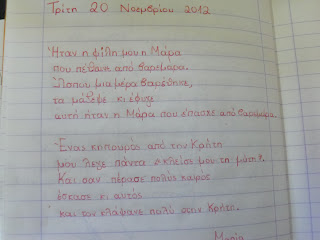 Τρίτη 20 Νοεμβρίου 2012
Ήταν η φίλη μου η Μάρα
που πέθανε από βαρεμάρα.
Ώσπου μια μέρα βαρέθηκε,
τα μάζεψε κι έφυγε
αυτή ήταν η Μάρα που έπασχε από βαρεμάρα.
Ένας κηπουρός από την Κρήτη
μου λεγε πάντα εκλεισες μου τη μύτη.
Και σαν πέρασε πολύς καιρός
έσκασε κι αυτός
και τον κλάψανε πολύ στην Κρήτη.
Μαρία